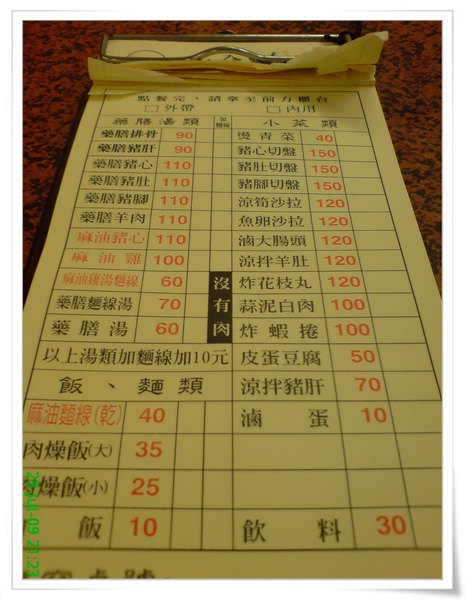 點餐完，請拿至前方櫃台
□外帶 □內用
藥膳湯類 加麵線 小菜類
藥膳排骨 90 燙青菜 40
藥膳豬肝 90 豬心切盤 150
藥膳豬心 110 豬肚切盤 150
藥膳豬肚 110 豬腳切盤 150
藥膳豬腳 110 涼筍沙拉 120
藥膳羊肉 110 魚卵沙拉 120
麻油豬心 110 滷大腸頭 120
麻油雞 100 涼拌羊肚 120
麻油雞湯麵線 60 沒有肉 炸花枝丸 120
藥膳麵線湯 70 蒜泥白肉 100
藥膳湯 60 炸蝦捲 100
以上湯類加麵線加10元 皮蛋豆腐 50
飯、麵類 涼拌豬肝 70
麻油麵線(乾) 40 滷蛋 10
肉燥飯(大) 35
燥飯(小) 25
飯 10 飲料 30
21:23